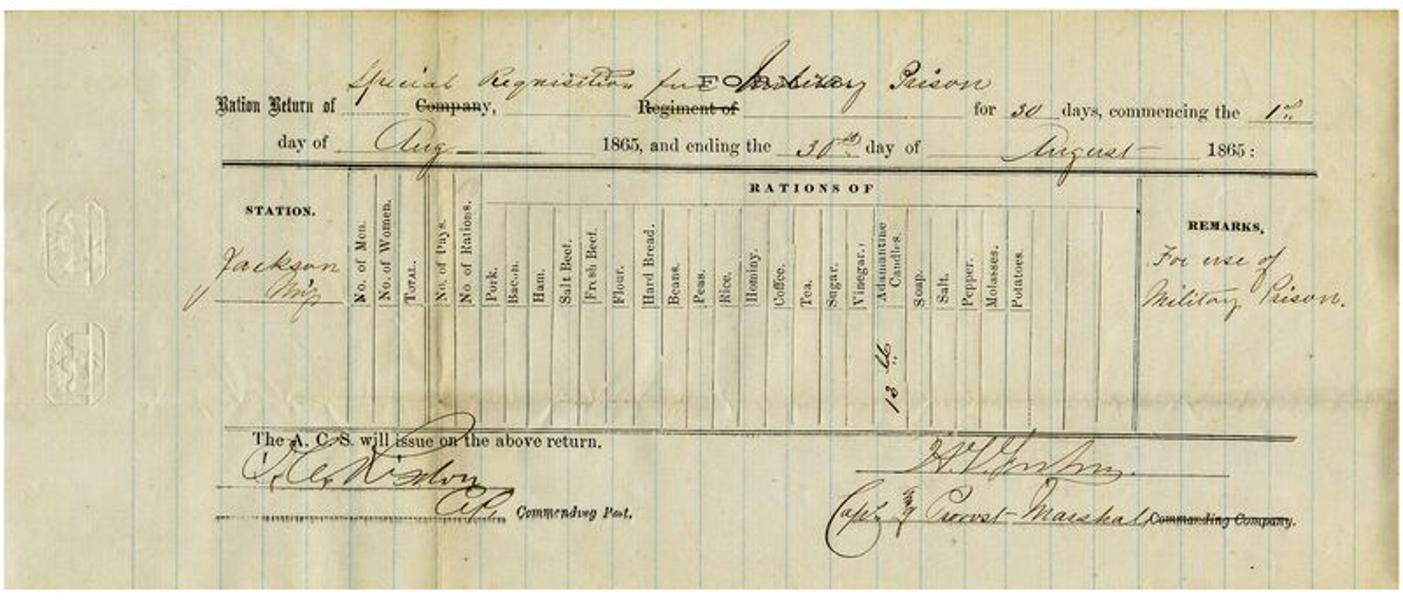 Special Requisition for Military Prison
FORM
Ration Return of Company, Regiment of for 30 days, commencing the 1st
day of Aug 1865, and ending the 30th day of August 1865:
RATIONS OF
STATION.
No. of Men.
No. of Women.
TOTAL.
No. of Days.
No of Rations.
Pork.
Bacon.
Ham.
Salt Beef.
Fresh Beef.
Flour.
Hard Bread.
Beans.
Peas.
Rice.
Hominy.
Coffee.
Tea.
Sugar.
Vinegar.
Adamantine Candles.
Soap.
Salt.
Pepper.
Molasses.
Potatoes.
REMARKS.
Jackson
For use of
Military Prison.
13 lb
The A. C. S. will issue on the above return.
Commending Post.
Capt & Provost Marshal Commanding Company.